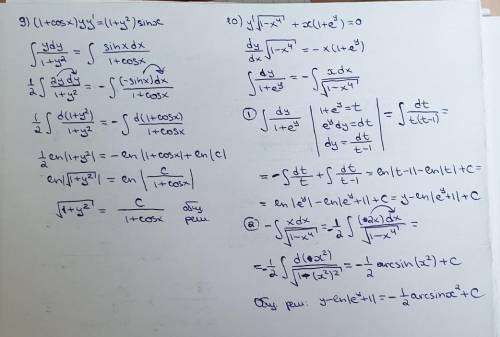 9) (1+cosx)yy' = (1+y²)sinx
∫ ydy/(1+y²) = ∫ sinxdx/(1+cosx)
1/2 ∫ 2ydy/(1+y²) = -∫ (-sinx)dx/(1+cosx)
1/2 ∫ d(1+y²)/(1+y²) = -∫ d(1+cosx)/(1+cosx)
1/2 ln|1+y²| = -ln|1+cosx| + ln|C|
ln|√(1+y²)| = ln|C/(1+cosx)|
√(1+y²) = C/(1+cosx) общ реш.
10) y'√(1-x⁴) + x(1+e^y) = 0
dy/dx √(1-x⁴) = -x(1+e^y)
∫ dy/(1+e^y) = -∫ xdx/√(1-x⁴)
① ∫ dy/(1+e^y) | 1+e^y = t
e^y dy = dt
dy = dt/(t-1) | = ∫ dt/(t(t-1)) =
= -∫ dt/t + ∫ dt/(t-1) = ln|t-1| - ln|t| + C =
= ln|e^y| - ln|e^y+1| + C = y - ln|e^y+1| + C
② -∫ xdx/√(1-x⁴) = -1/2 ∫ (2x)dx/√(1-x⁴) =
= -1/2 ∫ d(x²)/√(1-(x²)²) = -1/2 arcsin(x²) + C
Общ реш: y - ln|e^y+1| = -1/2 arcsinx² + C